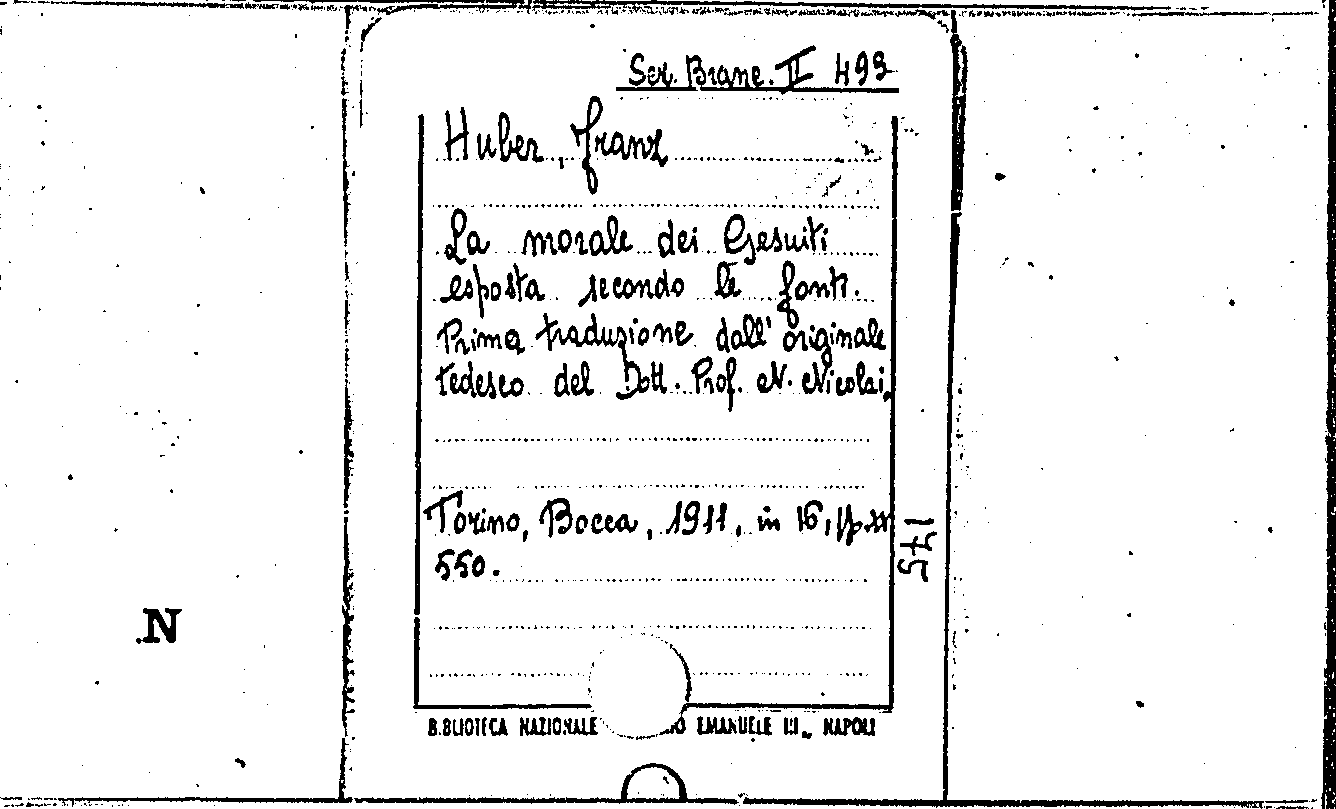 Ser. Branc. II 493
Huber, Franz
La morale dei Gesuiti
esposta secondo le fonti.
Prima traduzione dall'originale
tedesco del Dott. Prof. N. Nicolai.
Torino, Bocca, 1911, in 16, pp. XX
550.
175
N
BIBLIOTECA NAZIONALE EMANUELE III - NAPOLI